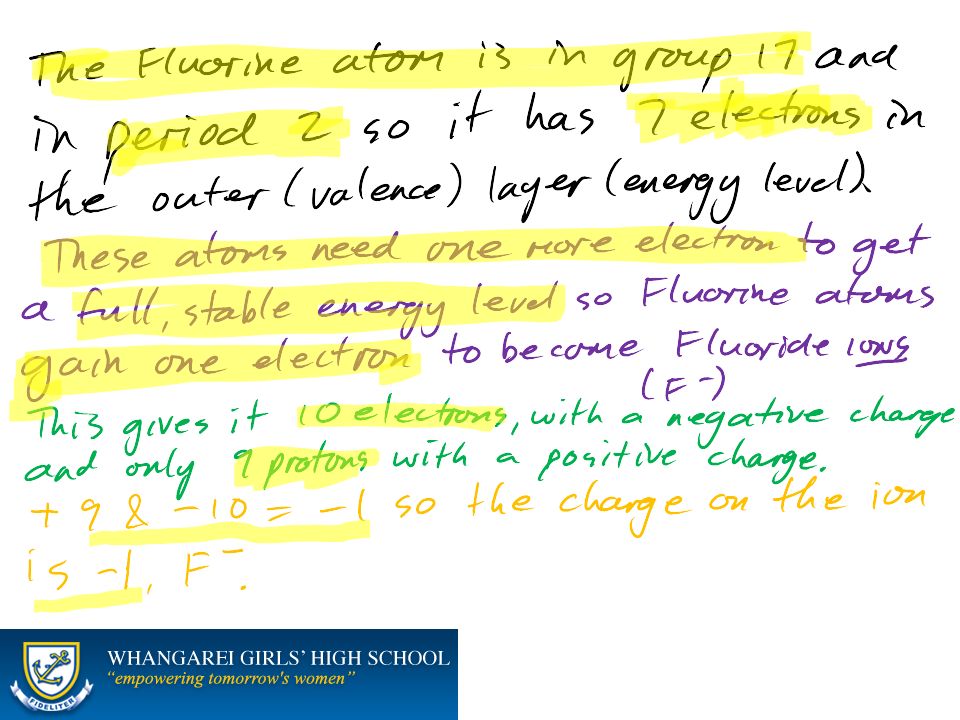 The Fluorine atom is in group 17 and
in period 2 so it has 7 electrons in
the outer (valence) layer (energy level).
These atoms need one more electron to get
a full, stable energy level so Fluorine atoms
gain one electron to become Fluoride ions
(F⁻)
This gives it 10 electrons, with a negative charge
and only 9 protons with a positive charge.
+9 & -10 = -1 so the charge on the ion
is -1, F⁻.
WHANGAREI GIRLS' HIGH SCHOOL
"empowering tomorrow's women"
FIDELITER